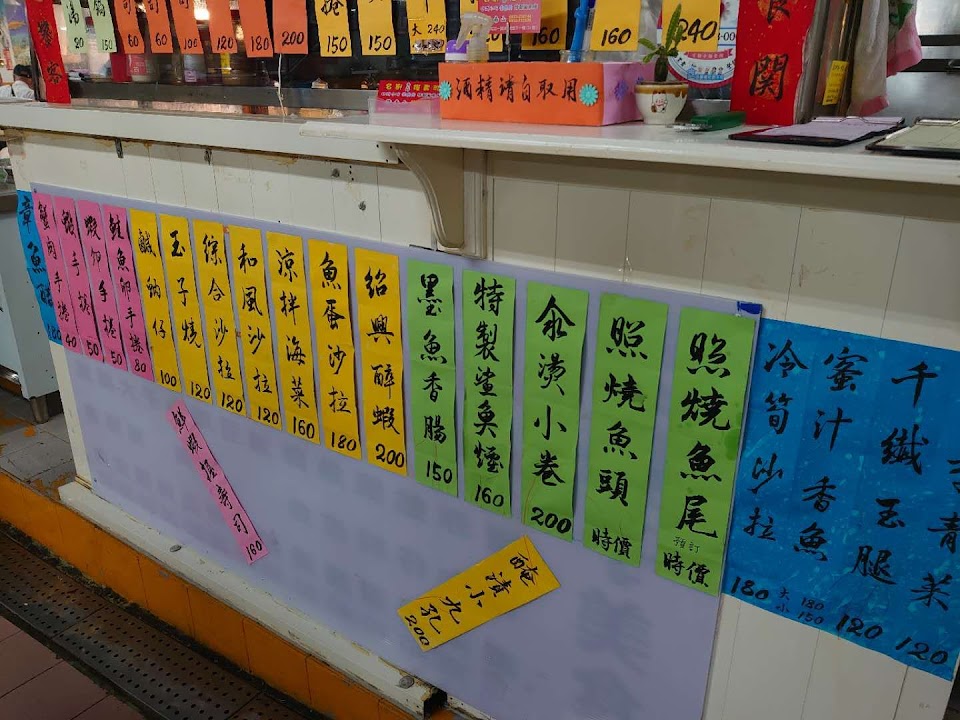 80
60
60
100
120
180
200
150
150
大240
160
160
240
關
酒精請自取用
章魚醋 180
蟹肉手捲 40
蝦手捲 50
蝦卵手捲 50
鮭魚卵手捲 80
鹹蚋仔 100
玉子燒 120
綜合沙拉 120
和風沙拉 120
涼拌海菜 160
魚蛋沙拉 180
紹興醉蝦 200
墨魚香腸 150
特製鯊魚煙 160
汆燙小卷 200
照燒魚頭 時價
照燒魚尾 預訂 時價
冷筍沙拉 180
蜜汁香魚 大180 小150
千纖玉腿 120
青菜 120
鮮蝦握壽司 160
醃漬小九孔 200